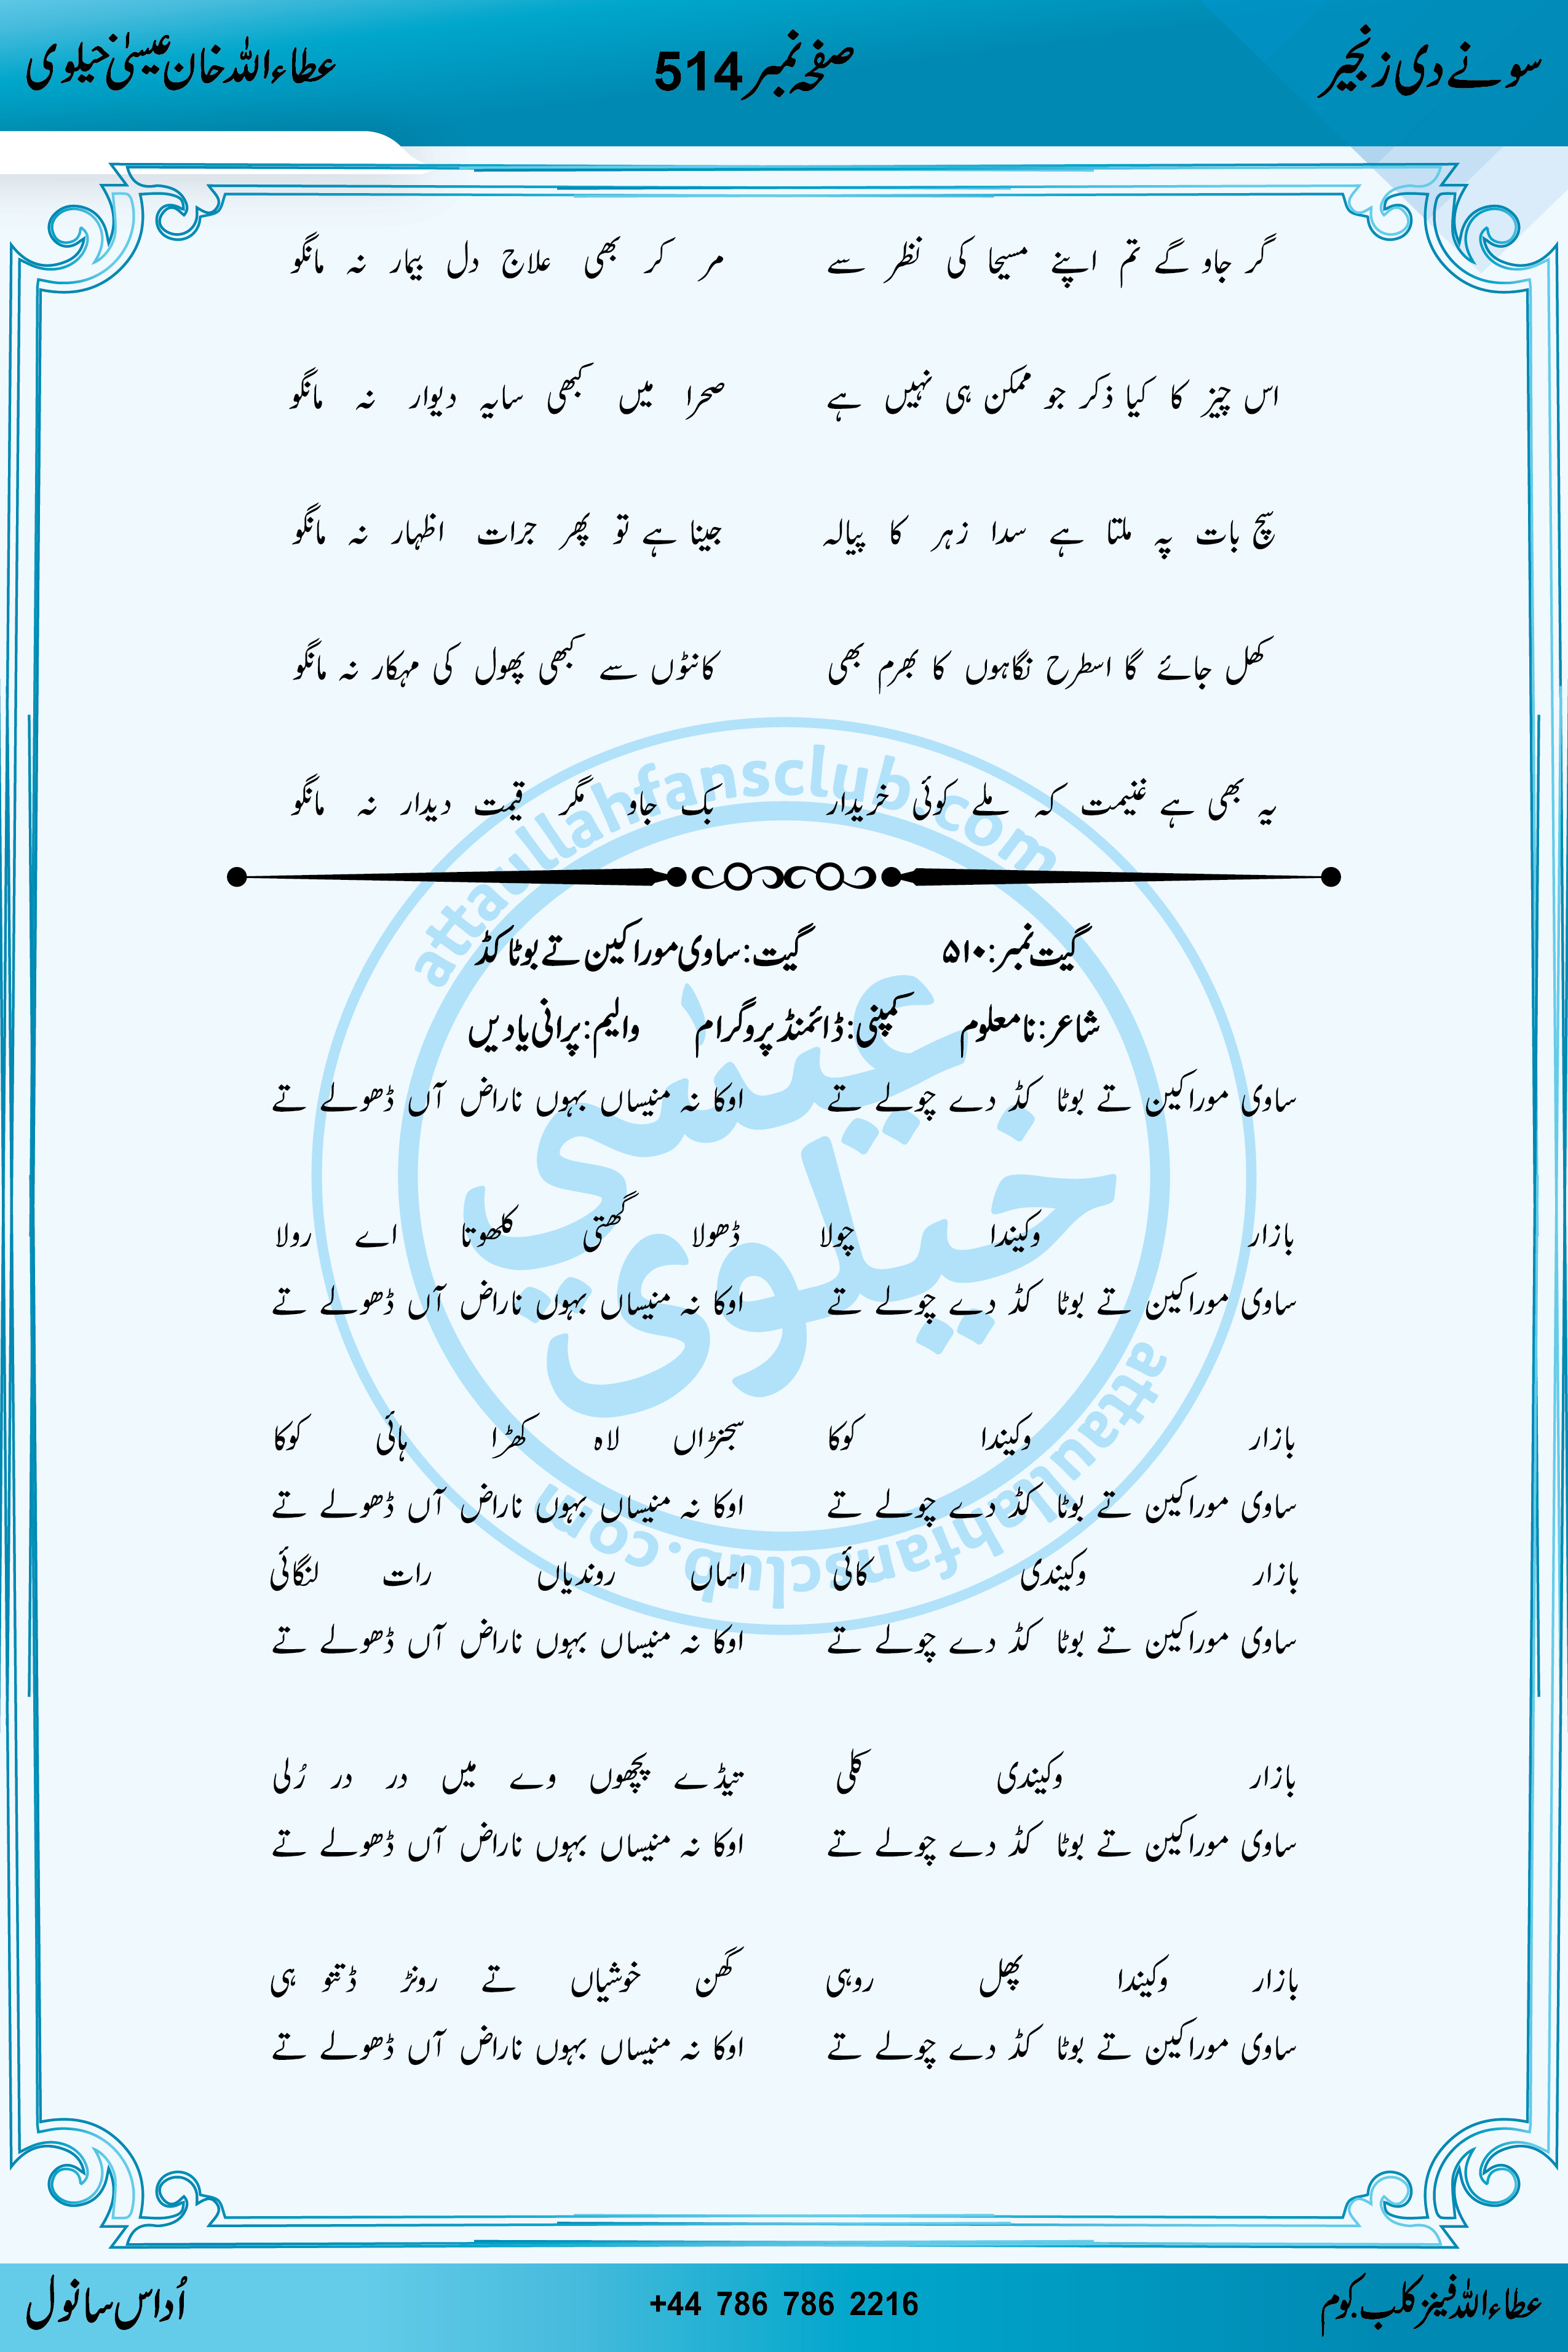 سونے دی زنجیر صفحہ نمبر 514 عطاءاللہ خان عیسیٰ خیلوی
گر جاو گے تم اپنے مسیحا کی نظر سے مر کر بھی علاج دل بیمار نہ مانگو
اس چیز کا کیا ذکر جو ممکن ہی نہیں ہے صحرا میں کبھی سایہ دیوار نہ مانگو
سچ بات پہ ملتا ہے سدا زہر کا پیالہ جینا ہے تو پھر جرات اظہار نہ مانگو
کھل جائے گا اسطرح نگاہوں کا بھرم بھی کانٹوں سے کبھی پھول کی مہکار نہ مانگو
یہ بھی ہے غنیمت کہ ملے کوئی خریدار بک جاو مگر قیمت دیدار نہ مانگو
گیت نمبر: ۵۱۰ گیت: ساوی موراکین تے بوٹا کڈ
شاعر: نامعلوم کمپنی: ڈائمنڈ پروگرام والیم: پرانی یادیں
ساوی موراکین تے بوٹا کڈ دے چولے تے اوکا نہ منیساں بہوں ناراض آں ڈھولے تے
بازار وکیندا چولا ڈھولا گھتی کلھوتا اے رولا
ساوی موراکین تے بوٹا کڈ دے چولے تے اوکا نہ منیساں بہوں ناراض آں ڈھولے تے
بازار وکیندا کوکا سجنڑاں لاہ کھڑا ہائی کوکا
ساوی موراکین تے بوٹا کڈ دے چولے تے اوکا نہ منیساں بہوں ناراض آں ڈھولے تے
بازار وکیندی کائی اساں روندیاں رات لنگائی
ساوی موراکین تے بوٹا کڈ دے چولے تے اوکا نہ منیساں بہوں ناراض آں ڈھولے تے
بازار وکیندی کلی تیڈے پچھوں وے میں در در رُلی
ساوی موراکین تے بوٹا کڈ دے چولے تے اوکا نہ منیساں بہوں ناراض آں ڈھولے تے
بازار وکیندا پھل روہی گھن خوشیاں تے رونڑ ڈتتو ہی
ساوی موراکین تے بوٹا کڈ دے چولے تے اوکا نہ منیساں بہوں ناراض آں ڈھولے تے
attaullahfansclub.com
عیسٰی
خیلوی
attaullahfansclub.com
عطاءاللہ فینز کلب.کوم +44 786 786 2216 اُداس سانول